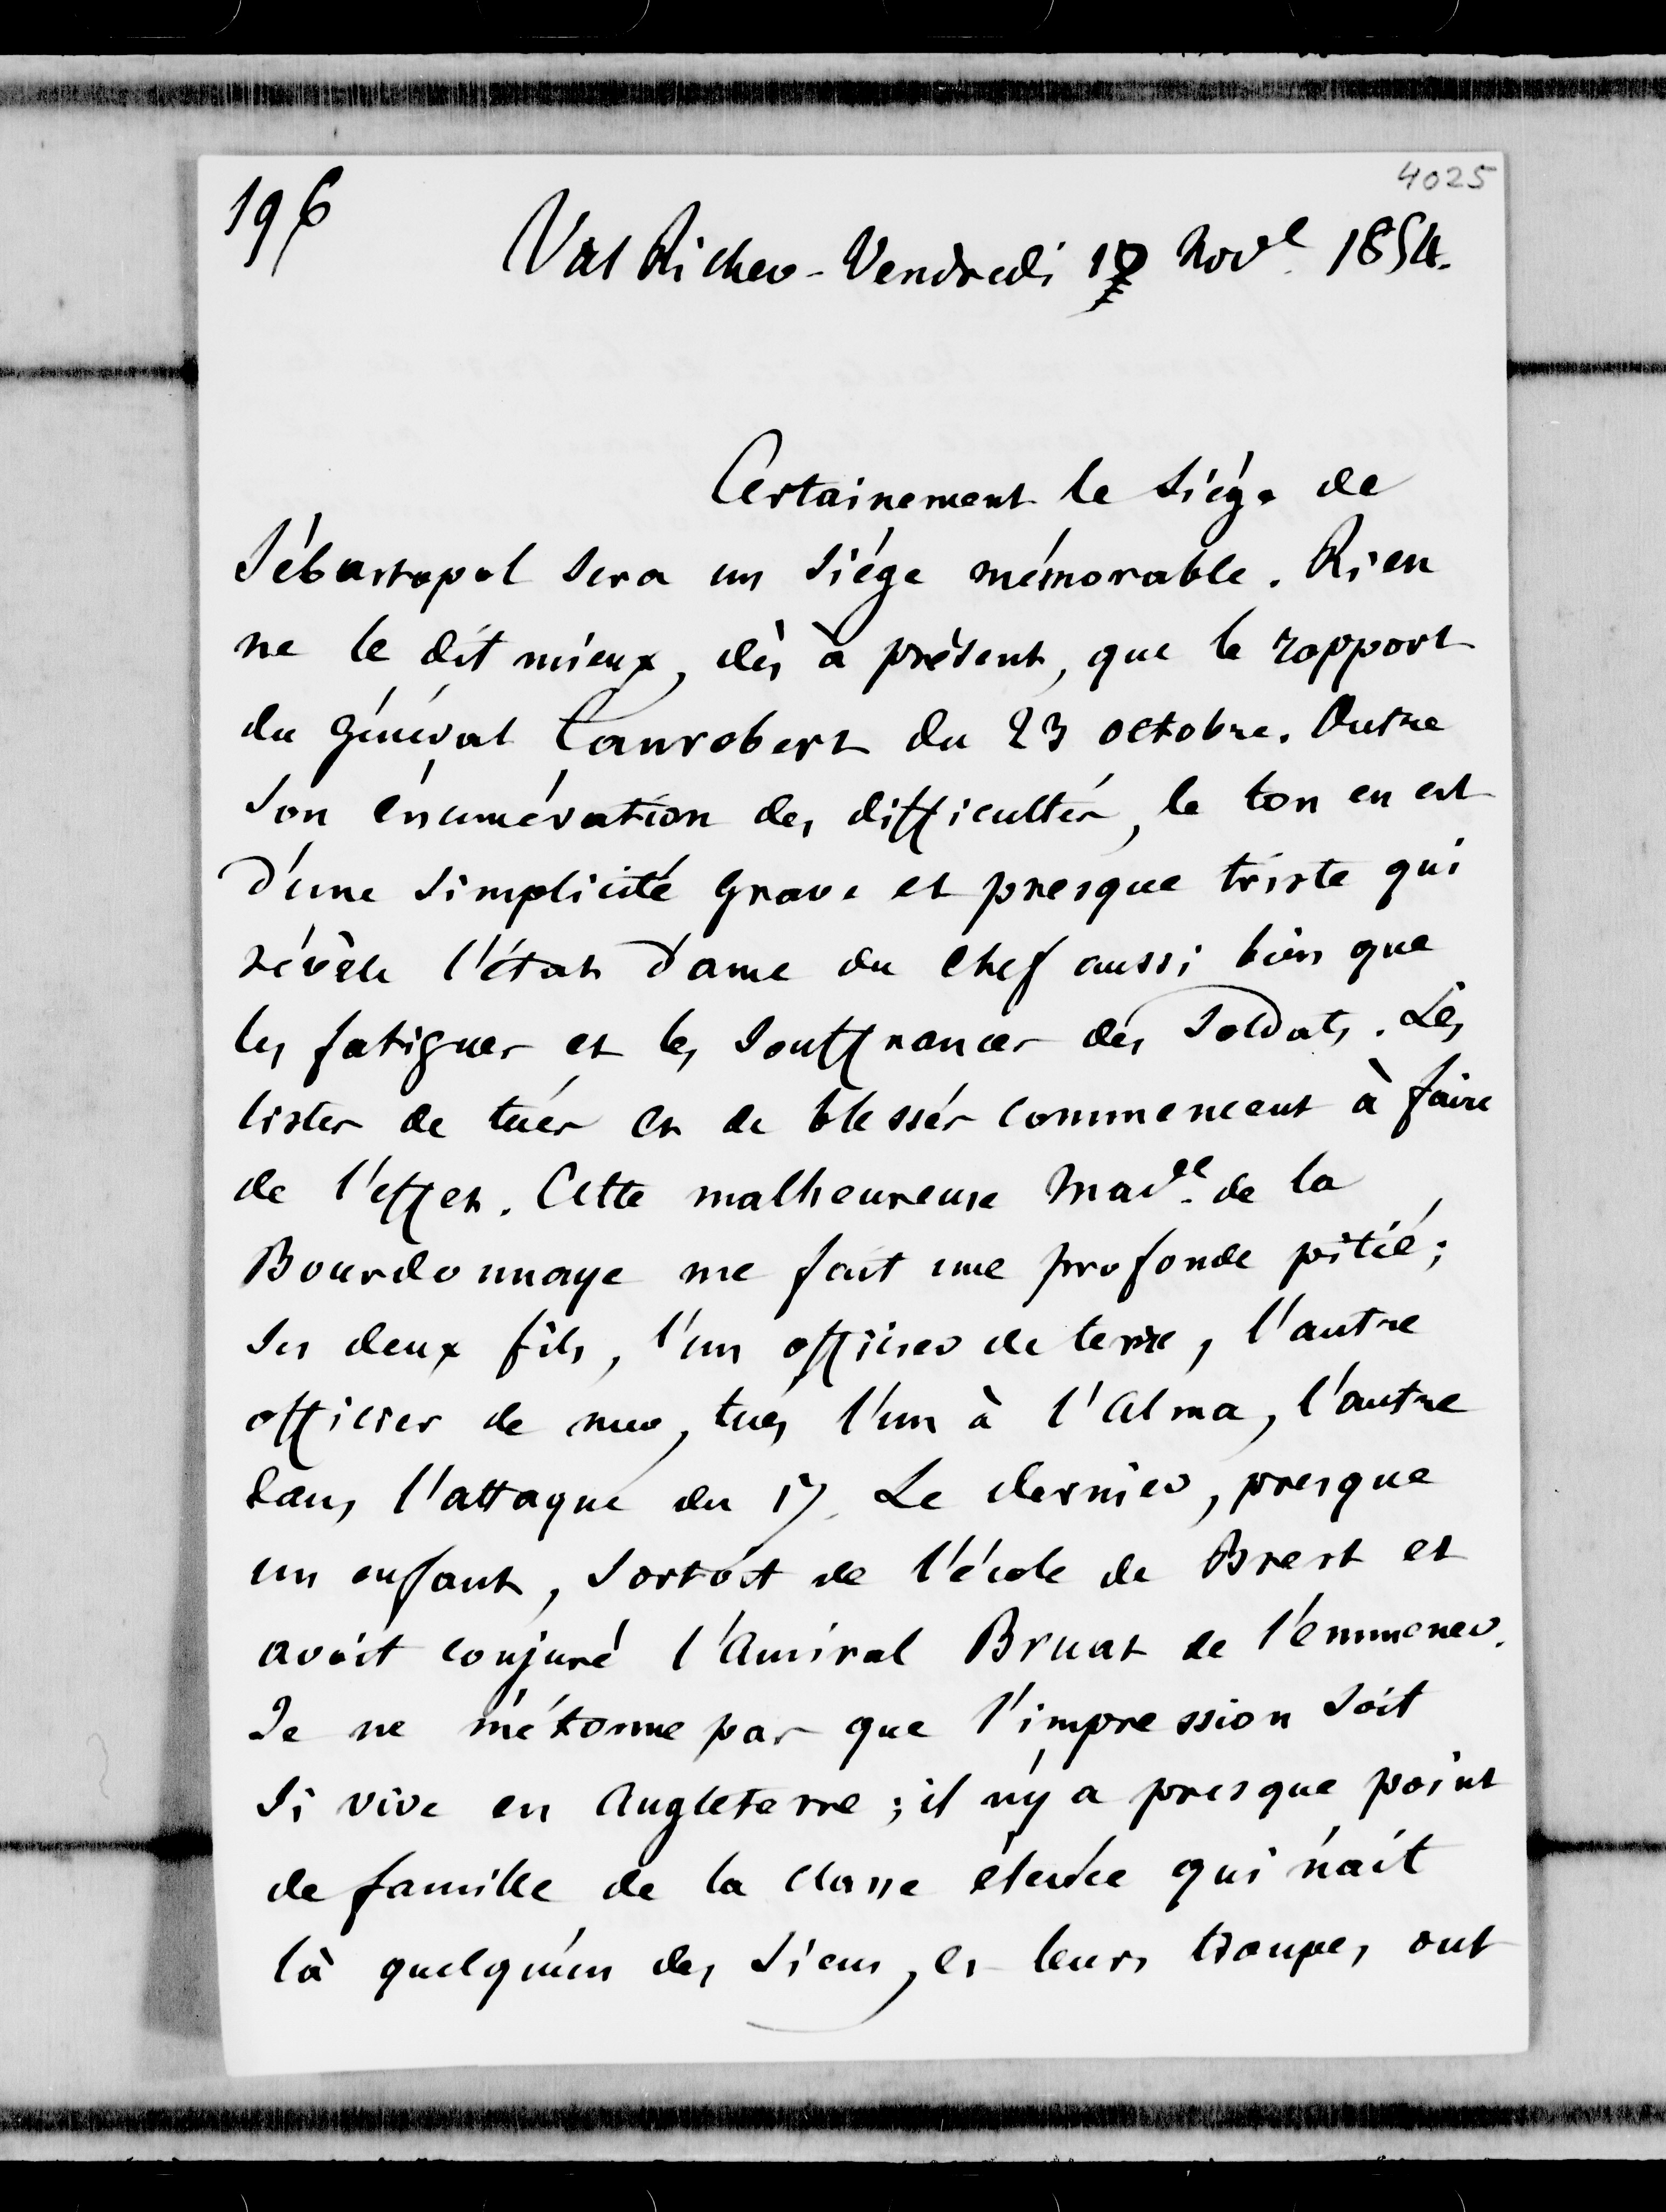 4025
196
Val Richer - Vendredi Novbe 1854.
Certainement le Siège de
Sébastopol sera un siége mémorable. Rien
ne le dit mieux, dès à présent, que le rapport
du général Canrobert du 23 octobre. Outre
son énumération des difficultés, le ton en est
d'une simplicité grave et presque triste qui
révèle l'état d'ame du chef aussi bien que
les fatigues et les souffrances des soldats. Les
listes de tués et de blessés commencent à faire
de l'effet. Cette malheureuse Made de la
Bourdonnaye me fait une profonde pitié;
ses deux fils, l'un officier de terre, l'autre
officier de mer, tués l'un à l'Alma, l'autre
dans l'attaque du 17. Le dernier, presque
un enfant, sortoit de l'école de Brest et
avoit conjuré l'Amiral Bruat de l'emmener.
Je ne m'étonne pas que l'impression soit
si vive en Angleterre; il n'y a presque point
de famille de la classe élevée qui n'ait
là quelqu'un des siens, et leurs troupes ont